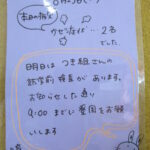 本日の病欠
かぜ症状… 2名
でした
明日は つき組さんの
就学前 検査が あります。
お知らせした通り
9:00 までに 登園をお願
いします